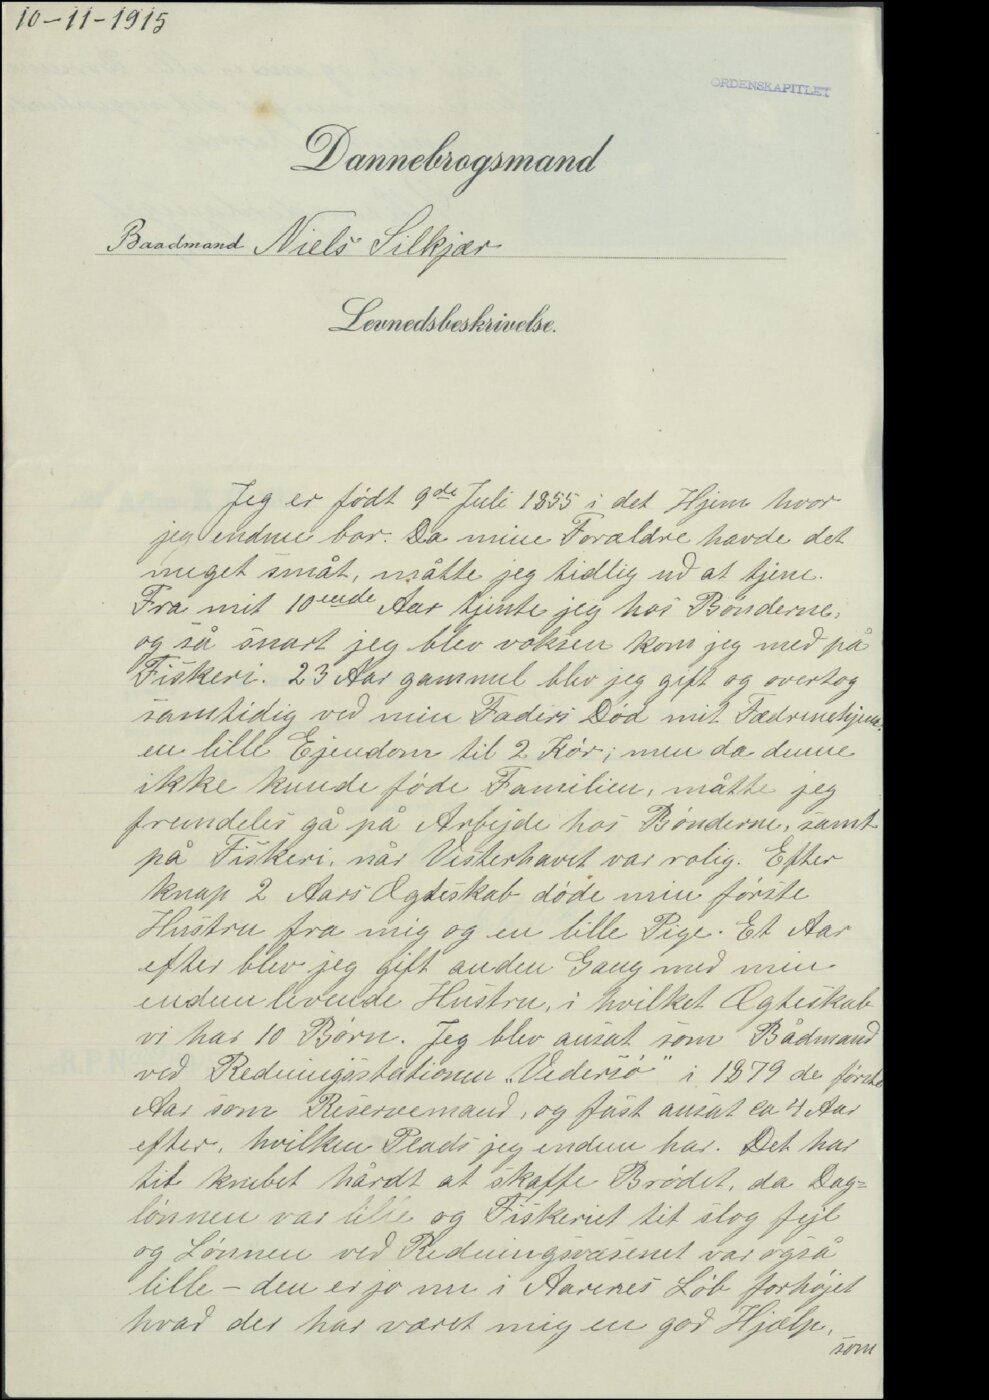 10-11-1915
ORDENSKAPITLET
Dannebrogsmand
Baadmand Niels Silkjær
Levnedsbeskrivelse.
Jeg er født 9de Juli 1855 i det Hjem hvor
jeg endnu bor. Da mine Forældre havde det
meget småt, måtte jeg tidlig ud at tjene.
Fra mit 10ende Aar tjente jeg hos Bønderne,
og så snart jeg blev voksen kom jeg med på
Fiskeri. 23 Aar gammel blev jeg gift og overtog
samtidig ved min Faders Død mit Fædrenehjem,
en lille Ejendom til 2 Køer; men da denne
ikke kunde føde Familien, måtte jeg
fremdeles gå på Arbejde hos Bønderne, samt
på Fiskeri, når Vesterhavet var rolig. Efter
knap 2 Aars Ægteskab døde min første
Hustru fra mig og en lille Pige. Et Aar
efter blev jeg gift anden Gang med min
endnu levende Hustru, i hvilket Ægteskab
vi har 10 Børn. Jeg blev ansat som Bådmand
ved Redningsstationen „Vedersø" i 1879 de første
Aar som Reservemand, og fast ansat ca 4 Aar
efter, hvilken Plads jeg endnu har. Det har
tit knebet hårdt at skaffe Brødet, da Dag=
lønnen var lille og Fiskeriet tit slog fejl
og Lønnen ved Redningsvæsenet var også
lille – den er jo nu i Aarenes Løb forhøjet
hvad der har været mig en god Hjælp,
som